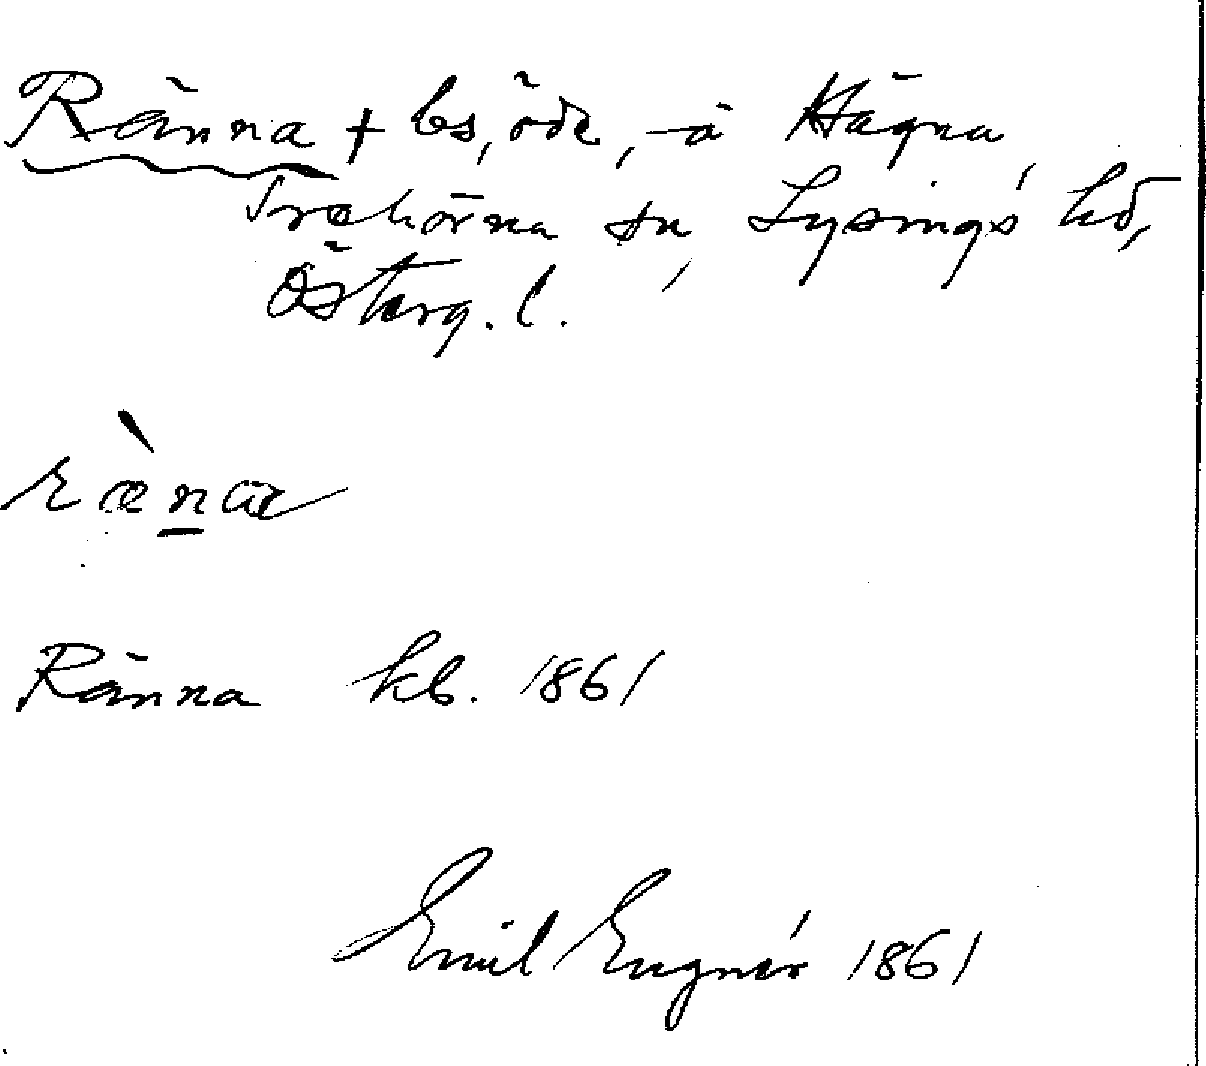 Ränna + bs, öde, å Hägna,
Trehörna sn, Lysings hd,
Österg. l.
rὰ̀na
Ränna kb. 1861
Emil Engnér 1861